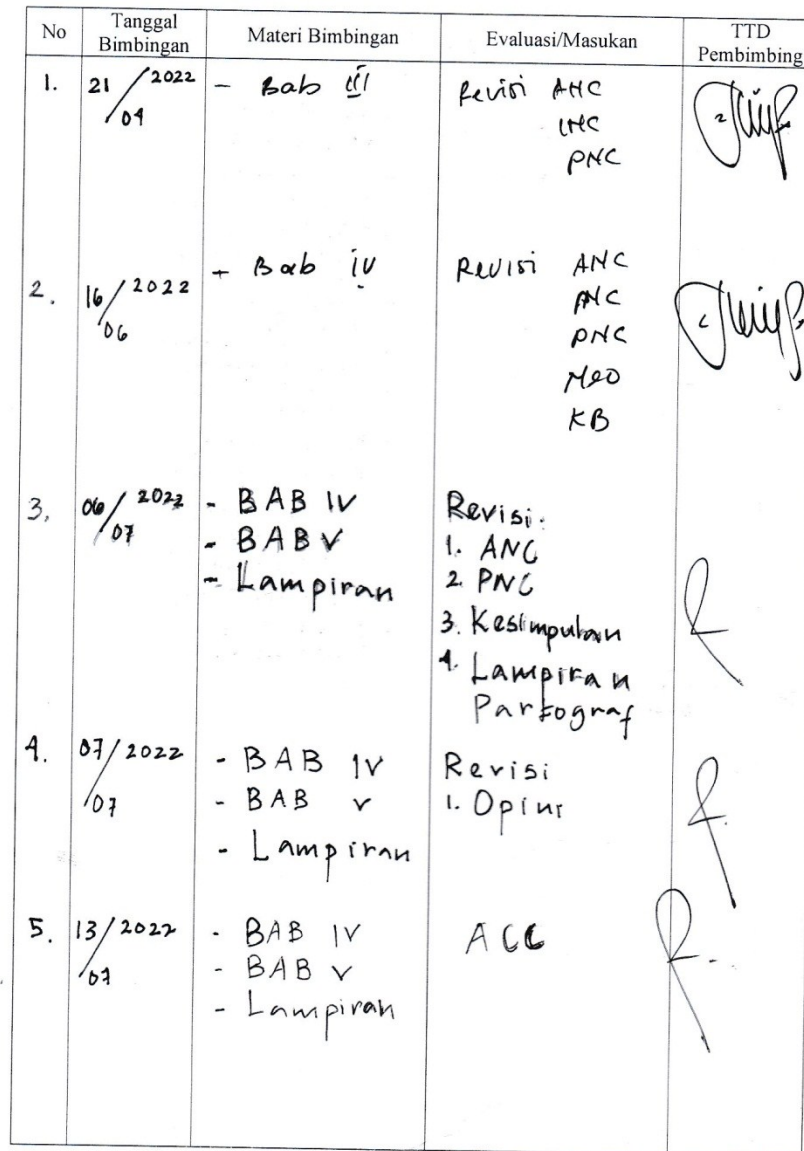 No Tanggal Bimbingan Materi Bimbingan Evaluasi/Masukan TTD Pembimbing
1. 21/04 2022 - Bab III Revisi ANC
INC
PNC
2. 16/06 2022 - Bab IV Revisi ANC
PNC
Neo
KB
3. 06/07 2022 - BAB IV Revisi:
- BAB V 1. ANC
- Lampiran 2. PNC
3. Kesimpulan
4. Lampiran
Partograf
4. 07/07 2022 - BAB IV Revisi
- BAB V 1. Opini
- Lampiran
5. 13/07 2022 - BAB IV ACC
- BAB V
- Lampiran